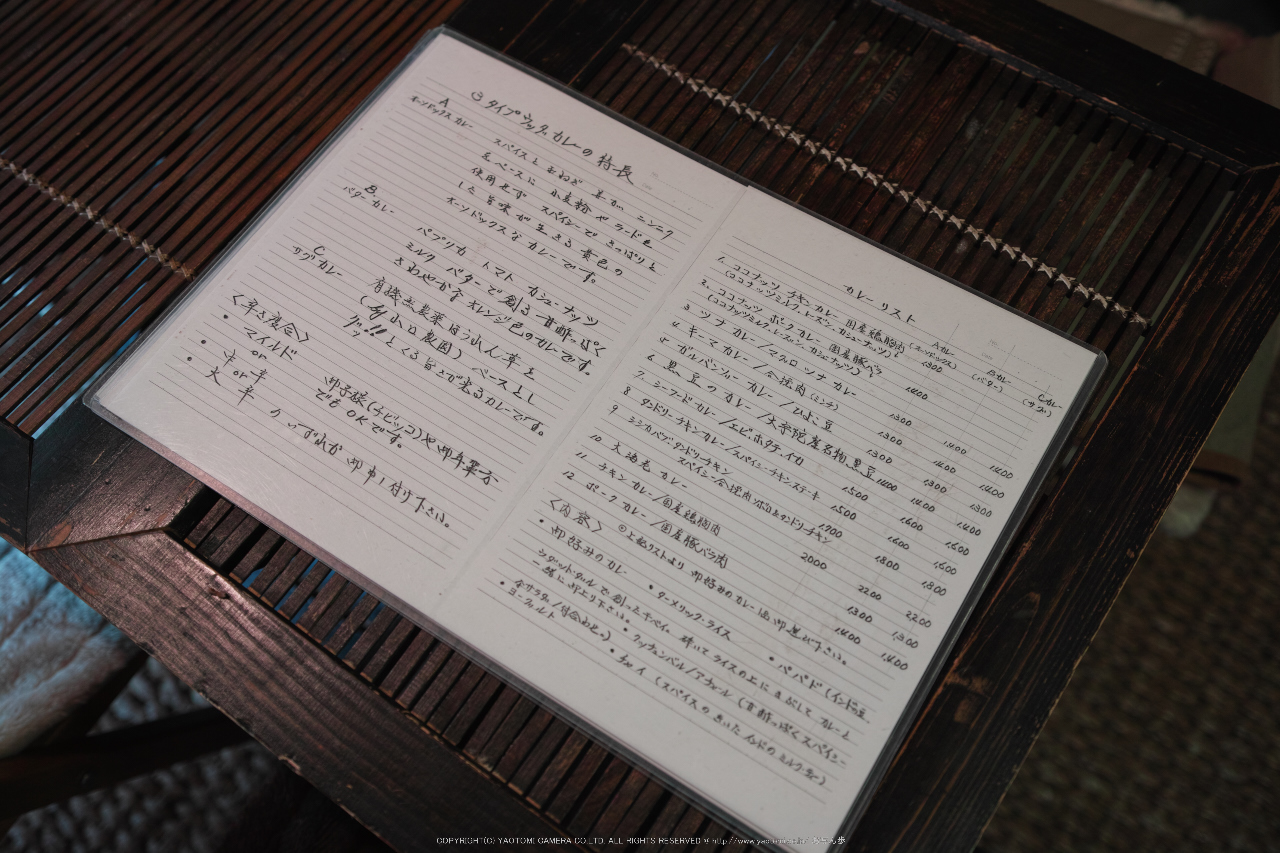 ③ タイプ カレーの 特長
A
オーソドックスカレー
スパイスと 玉ねぎ 生カ゛ー ニンニク
をベースに 小麦粉やラードを
使用せず スパイシーで さっぱりと
した 旨味が生きる 黄色の
オーソドックスな カレーです。
B
バターカレー
パプリカ トマト カシューナッツ
ミルク バターで創る 甘酢っぱく
さわやかな オレンジ色のカレーです。
C
サグカレー
有機無農薬ほうれん草を
小口農園) ベースとし
グッ!!とくる 旨さが光るカレーです。
〈辛さ度合〉
・マイルド
or
・中辛
or
・大辛 の いずれか 御申し付け下さい。
御子様(チビッコ)や
でもOKです。
カレーリスト
Aカレー
(オーソドックス)
Bカレー
(バター)
Cカレー
(サグ)
1. ココナッツ チキンカレー 国産鶏胸肉 1300
(ココナッツミルク、レーズン、カシューナッツ)
2. ココナッツ ポークカレー 国産豚バラ 1400
(ココナッツミルク、レーズン、カシューナッツ)
3 ツナカレー/マグロツナカレー 1300 1400 1400
4 キーマカレー/合挽肉(ミンチ) 1300 1400 1400
5 ガルバンゾーカレー/ひよこ豆
6 黒豆のカレー/ 産名物黒豆 1400
7. シーフードカレー/エビ、ホタテ、イカ 1500 1600 1600
8 タンドリーチキンカレー/スパイシーチキンステーキ 1500 1600 1600
9 シシカバブ・タンドリチキン 1700 1800 1800
スパイシー合挽肉 &タンドリーチキン
10 カレー 2000 2200 2200
11 チキンカレー/国産鶏胸肉 1300 1300
12 ポークカレー/国産豚バラ肉 1400 1400
〈内容〉 ◎上記リストより 御好みのカレー 御選び下さい。
・御好みのカレー ・ターメリック・ライス ・パパド(インドの豆
ウダッド・ダルで創ったせんべい。砕いてライスの上にまぶして カレーと
一緒に御上り下さい。
・ アチャール (甘酢っぱくスパイシー
・生サラダ/付合わせ。)
ヨーグルト ・チャイ (スパイスのきいたインドのミルクティー)
COPYRIGHT(C) YAOTOMI CAMERA CO.LTD. ALL RIGHTS RESERVED